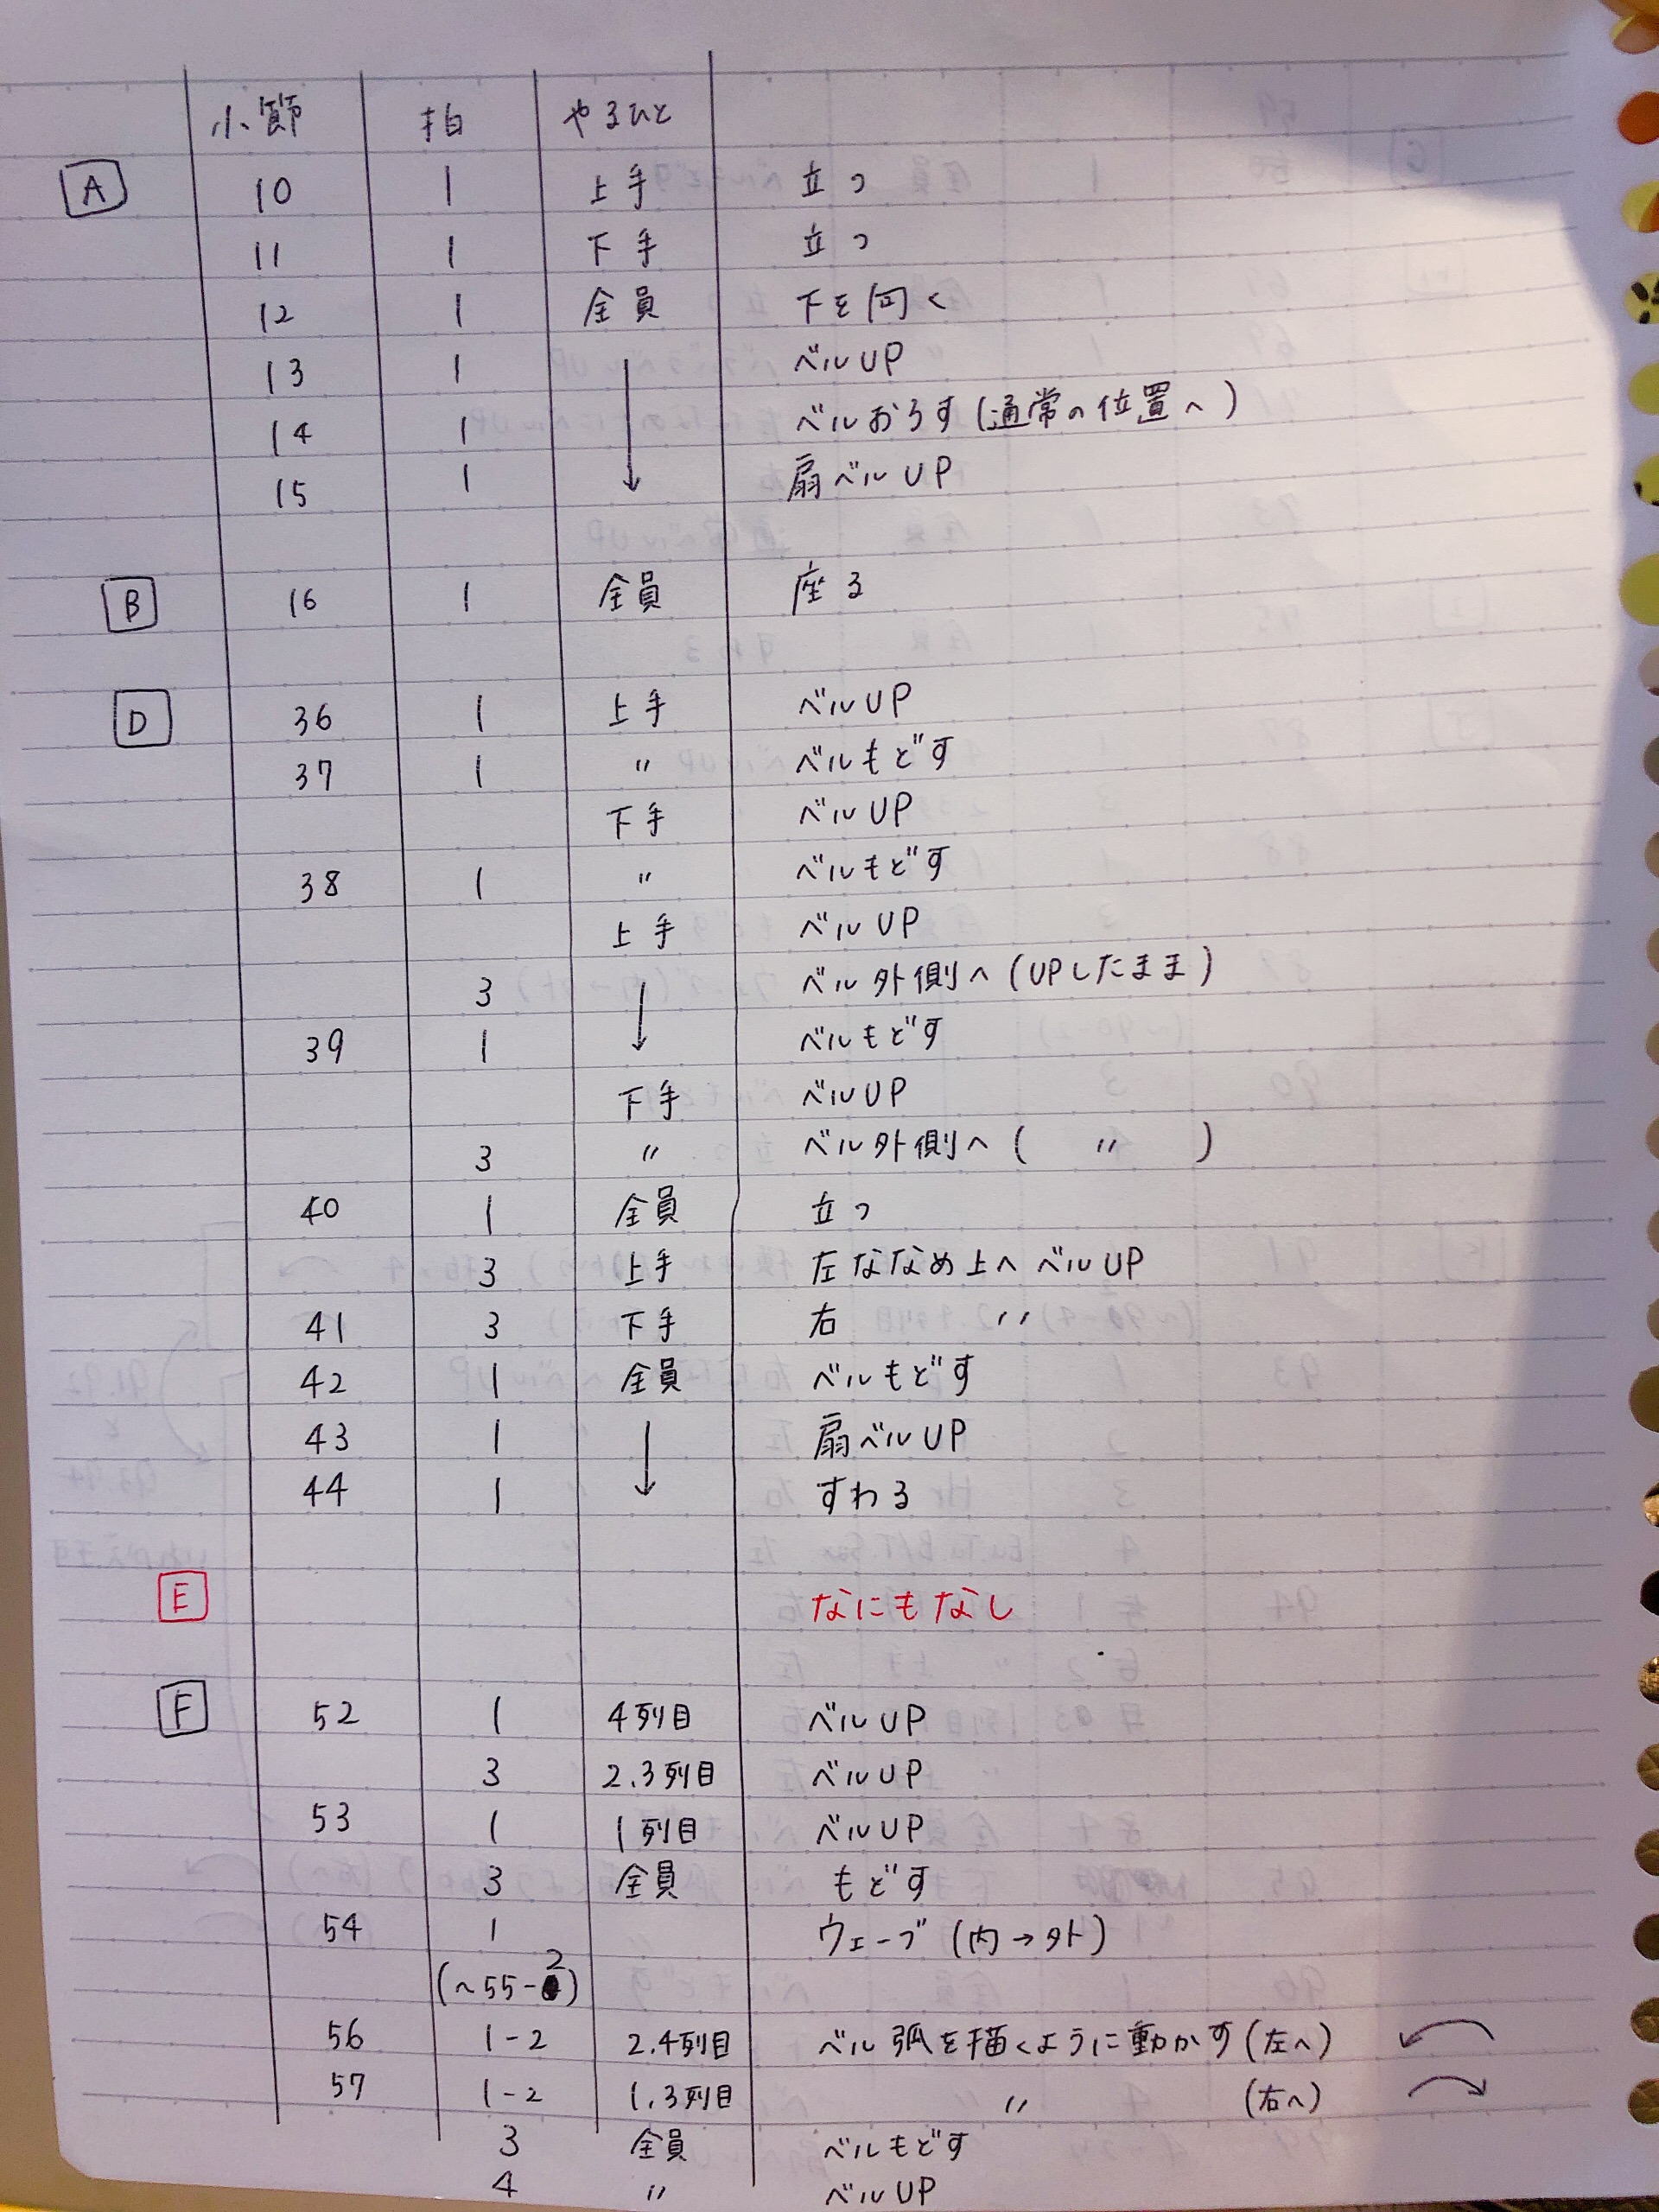 小節 拍 やるひと
A 10 1 上手 立つ
11 1 下手 立つ
12 1 全員 下を向く
13 1 ベルUP
14 1 ベルおろす(通常の位置へ)
15 1 ↓ 扇ベルUP
B 16 1 全員 座る
D 36 1 上手 ベルUP
37 1 〃 ベルもどす
下手 ベルUP
38 1 〃 ベルもどす
上手 ベルUP
3 ベル外側へ(UPしたまま)
39 1 ↓ ベルもどす
下手 ベルUP
3 〃 ベル外側へ( 〃 )
40 1 全員 立つ
3 上手 左ななめ上へベルUP
41 3 下手 右 〃
42 1 全員 ベルもどす
43 1 扇ベルUP
44 1 ↓ すわる
E なにもなし
F 52 1 4列目 ベルUP
3 2.3列目 ベルUP
53 1 1列目 ベルUP
3 全員 もどす
54 1 ウェーブ(内→外)
(~55-2)
56 1-2 2.4列目 ベル弧を描くように動かす(左へ)
57 1-2 1.3列目 〃 (右へ)
3 全員 ベルもどす
4 〃 ベルUP